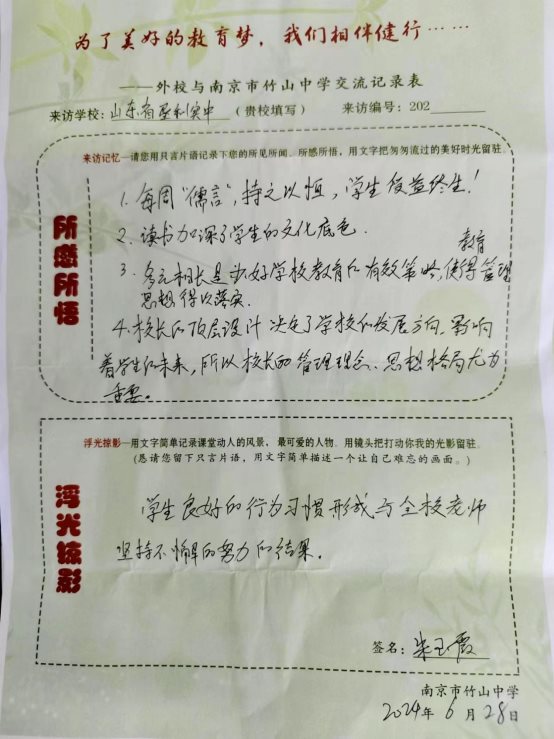 为了美好的教育梦，我们相伴健行……
——外校与南京市竹山中学交流记录表
来访学校：山东省垦利实中（贵校填写） 来访编号：202
来访记忆—请您用只言片语记录下您的所见所闻、所感所悟，用文字把匆匆流过的美好时光留驻。
所感所悟
1. 每周“儒言”，持之以恒，学生受益终生！
2. 读书加深了学生的文化底色.
3. 多元相长是办好学校教育的有效策略，使得教育管理
思想得以落实.
4. 校长的顶层设计决定了学校的发展方向，影响
着学生的未来，所以校长的管理理念、思想格局尤为
重要。
浮光掠影—用文字简单记录课堂动人的风景，最可爱的人物。用镜头把打动你我的光影留驻。
（恳请您留下只言片语，用文字简单描述一个让自己难忘的画面。）
浮光掠影
学生良好的行为习惯形成与全校老师
坚持不懈的努力的结果。
签名：朱玉霞
南京市竹山中学
2024年6月28日